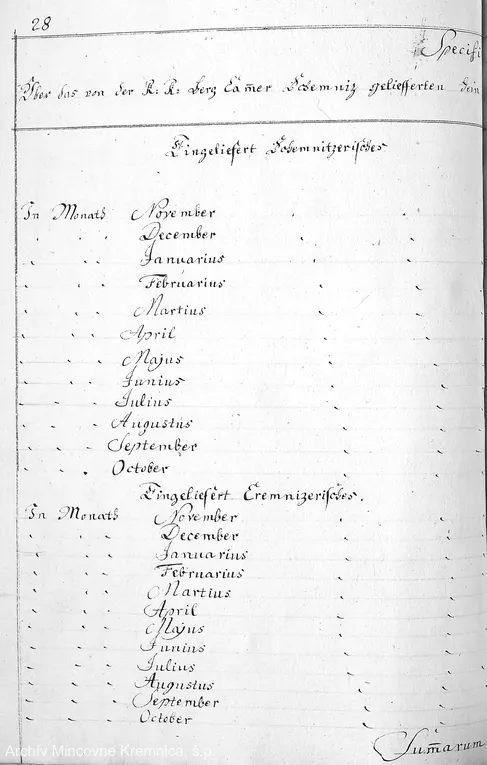 28
Specifi
Über das von der K: K: Berg Cam̄er Schemniz geliefferten
Eingeliefert Schemnitzerisches
In Monath November
December
Januarius
Februarius
Martius
April
Majus
Junius
Julius
Augustus
September
October
Eingeliefert Cremnizerisches.
In Monath November
December
Januarius
Februarius
Martius
April
Majus
Junius
Julius
Augustus
September
October
Sum̄arum
Archív Mincovne Kremnica, š.p.